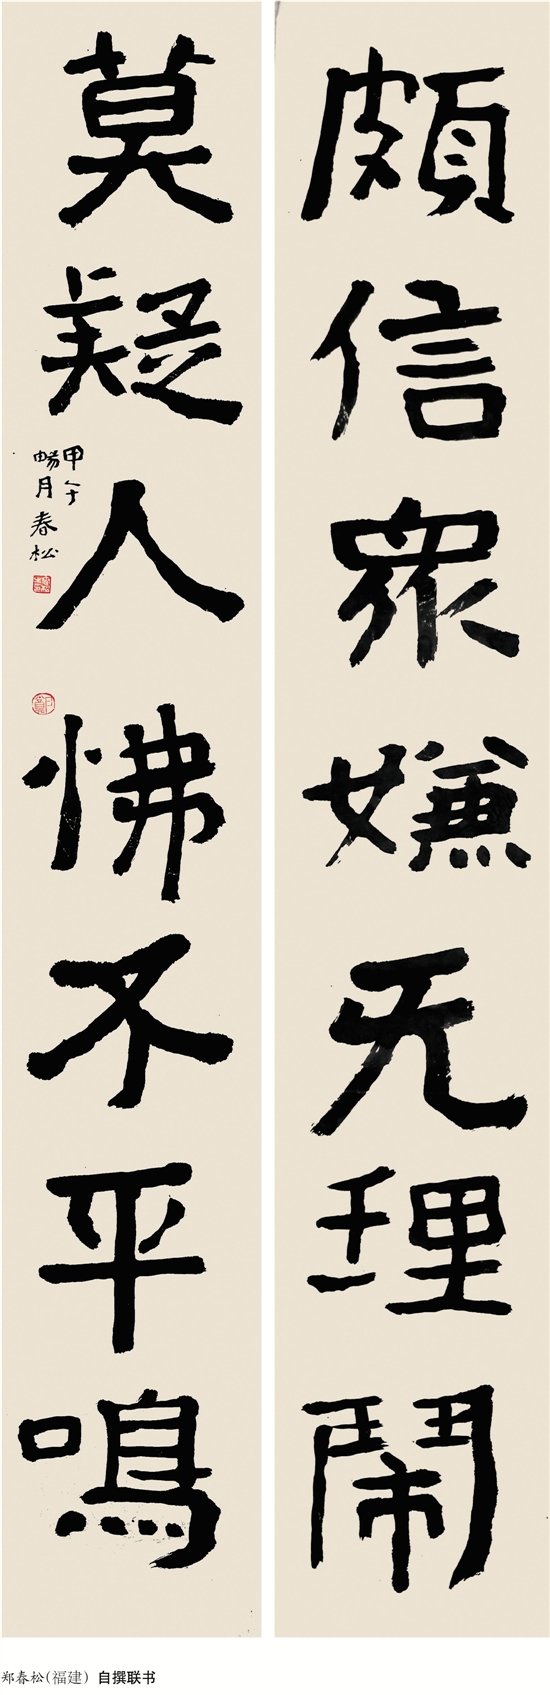 頗信眾嫌无理鬧
莫疑人怫不平鳴
甲午
暢月春松
郑春松(福建) 自撰联书